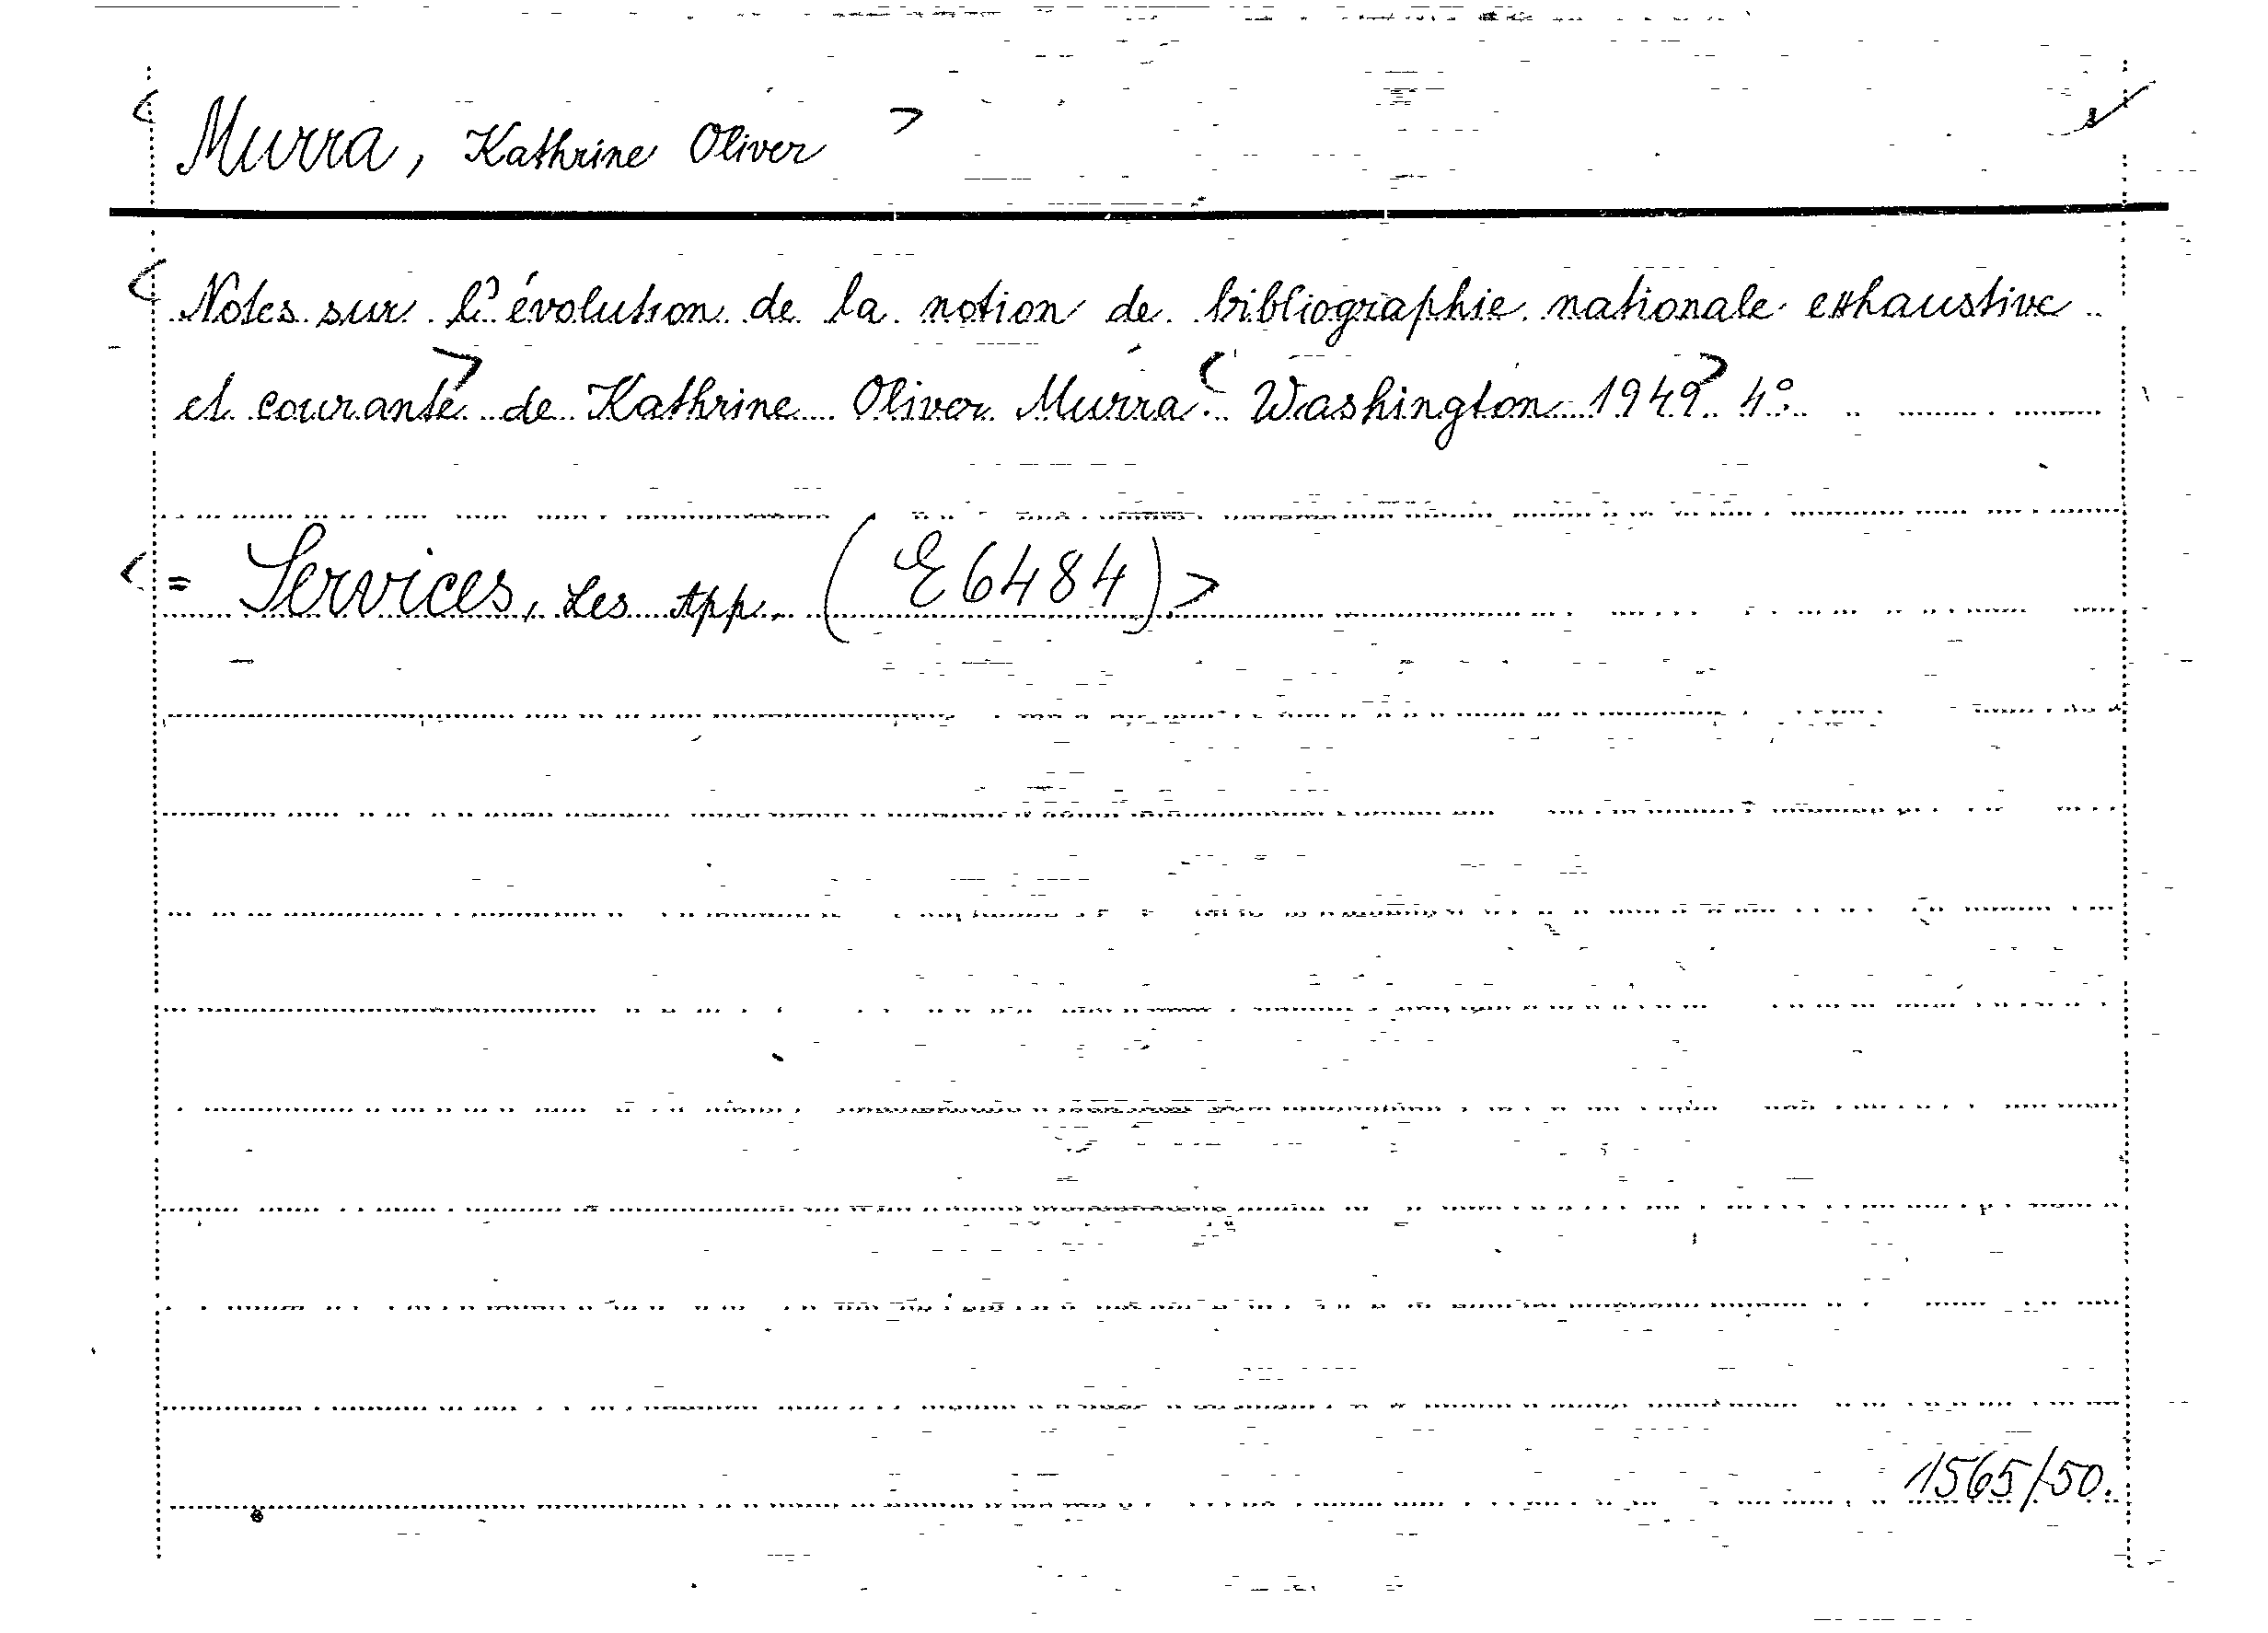 < Murra, Kathrine Oliver >
< Notes sur l'évolution de la notion de bibliographie nationale exhaustive
et courante > de Kathrine Oliver Murra. < Washington 1949 > 4°.
< = Services, Les App. (E6484) >
1565/50.